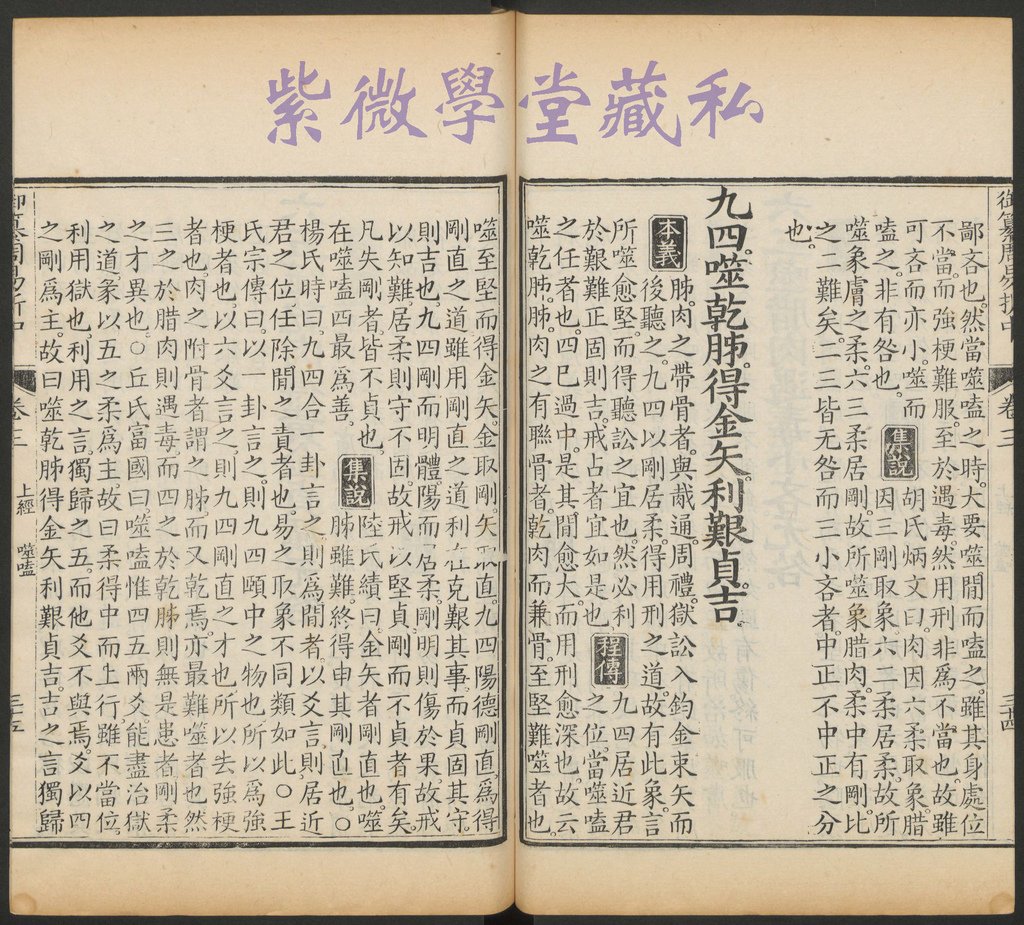 紫微學堂藏私
御纂周易折中
卷三
三十四
鄙吝也然當噬嗑之時大要噬閒而嗑之雖其身處位
不當而強梗難服至於遇毒然用刑非爲不當也故雖
可吝而亦小噬而
嗑之非有咎也
集說
胡氏炳文曰肉因六柔取象腊
因三剛取象六二柔居柔故所
噬象膚之柔六三柔居剛故所噬象腊肉柔中有剛比
之二難矣二三皆无咎而三小吝者中正不中正之分
也
九四噬乾胏得金矢利艱貞吉
本義
胏肉之帶骨者與胾通周禮獄訟入鈞金束矢而
後聽之九四以剛居柔得用刑之道故有此象言
所噬愈堅而得聽訟之宜也然必利
於艱難正固則吉戒占者宜如是也
程傳
九四居近君
之位當噬嗑
之任者也四已過中是其閒愈大而用刑愈深也故云
噬乾胏胏肉之有聯骨者乾肉而兼骨至堅難噬者也
噬至堅而得金矢金取剛矢取直九四陽德剛直爲得
剛直之道雖用剛直之道利在克艱其事而貞固其守
則吉也九四剛而明體陽而居柔剛明則傷於果故戒
以知難居柔則守不固故戒以堅貞剛而不貞者有矣
凡失剛者皆不貞也
在噬嗑四最爲善
集說
陸氏績曰金矢者剛直也噬
胏雖難終得申其剛直也○
楊氏時曰九四合一卦言之則爲閒者以爻言則居近
君之位任除閒之責者也易之取象不同類如此○王
氏宗傳曰以一卦言之則九四頤中之物也所以爲強
梗者也以六爻言之則九四剛直之才也所以去強梗
者也肉之附骨者謂之胏而又乾焉亦最難噬者也然
三之於腊肉則遇毒而四之於乾胏則無是患者剛柔
之才異也○丘氏富國曰噬嗑惟四五兩爻能盡治獄
之道彖以五之柔爲主故曰柔得中而上行雖不當位
利用獄也利用之言獨歸之五而他爻不與焉爻以四
之剛爲主故曰噬乾胏得金矢利艱貞吉吉之言獨歸
御纂周易折中
卷三
上經
噬嗑
三十五